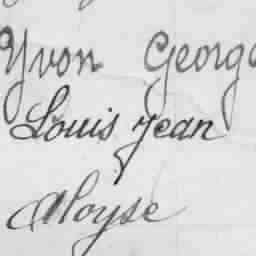 Yvon Georg
Louis Jean
Aloyse